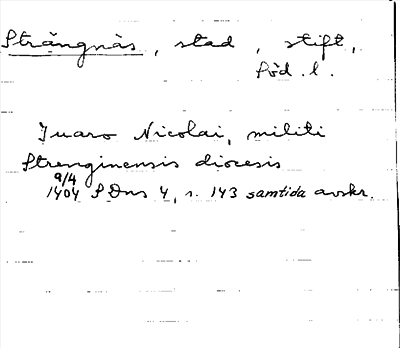 Strängnäs, stad, stift,
Söd. l.
Juaro Nicolai, militi
Strenginensis diocesis
9/4
1404 SDns 4, s. 143 samtida avskr.